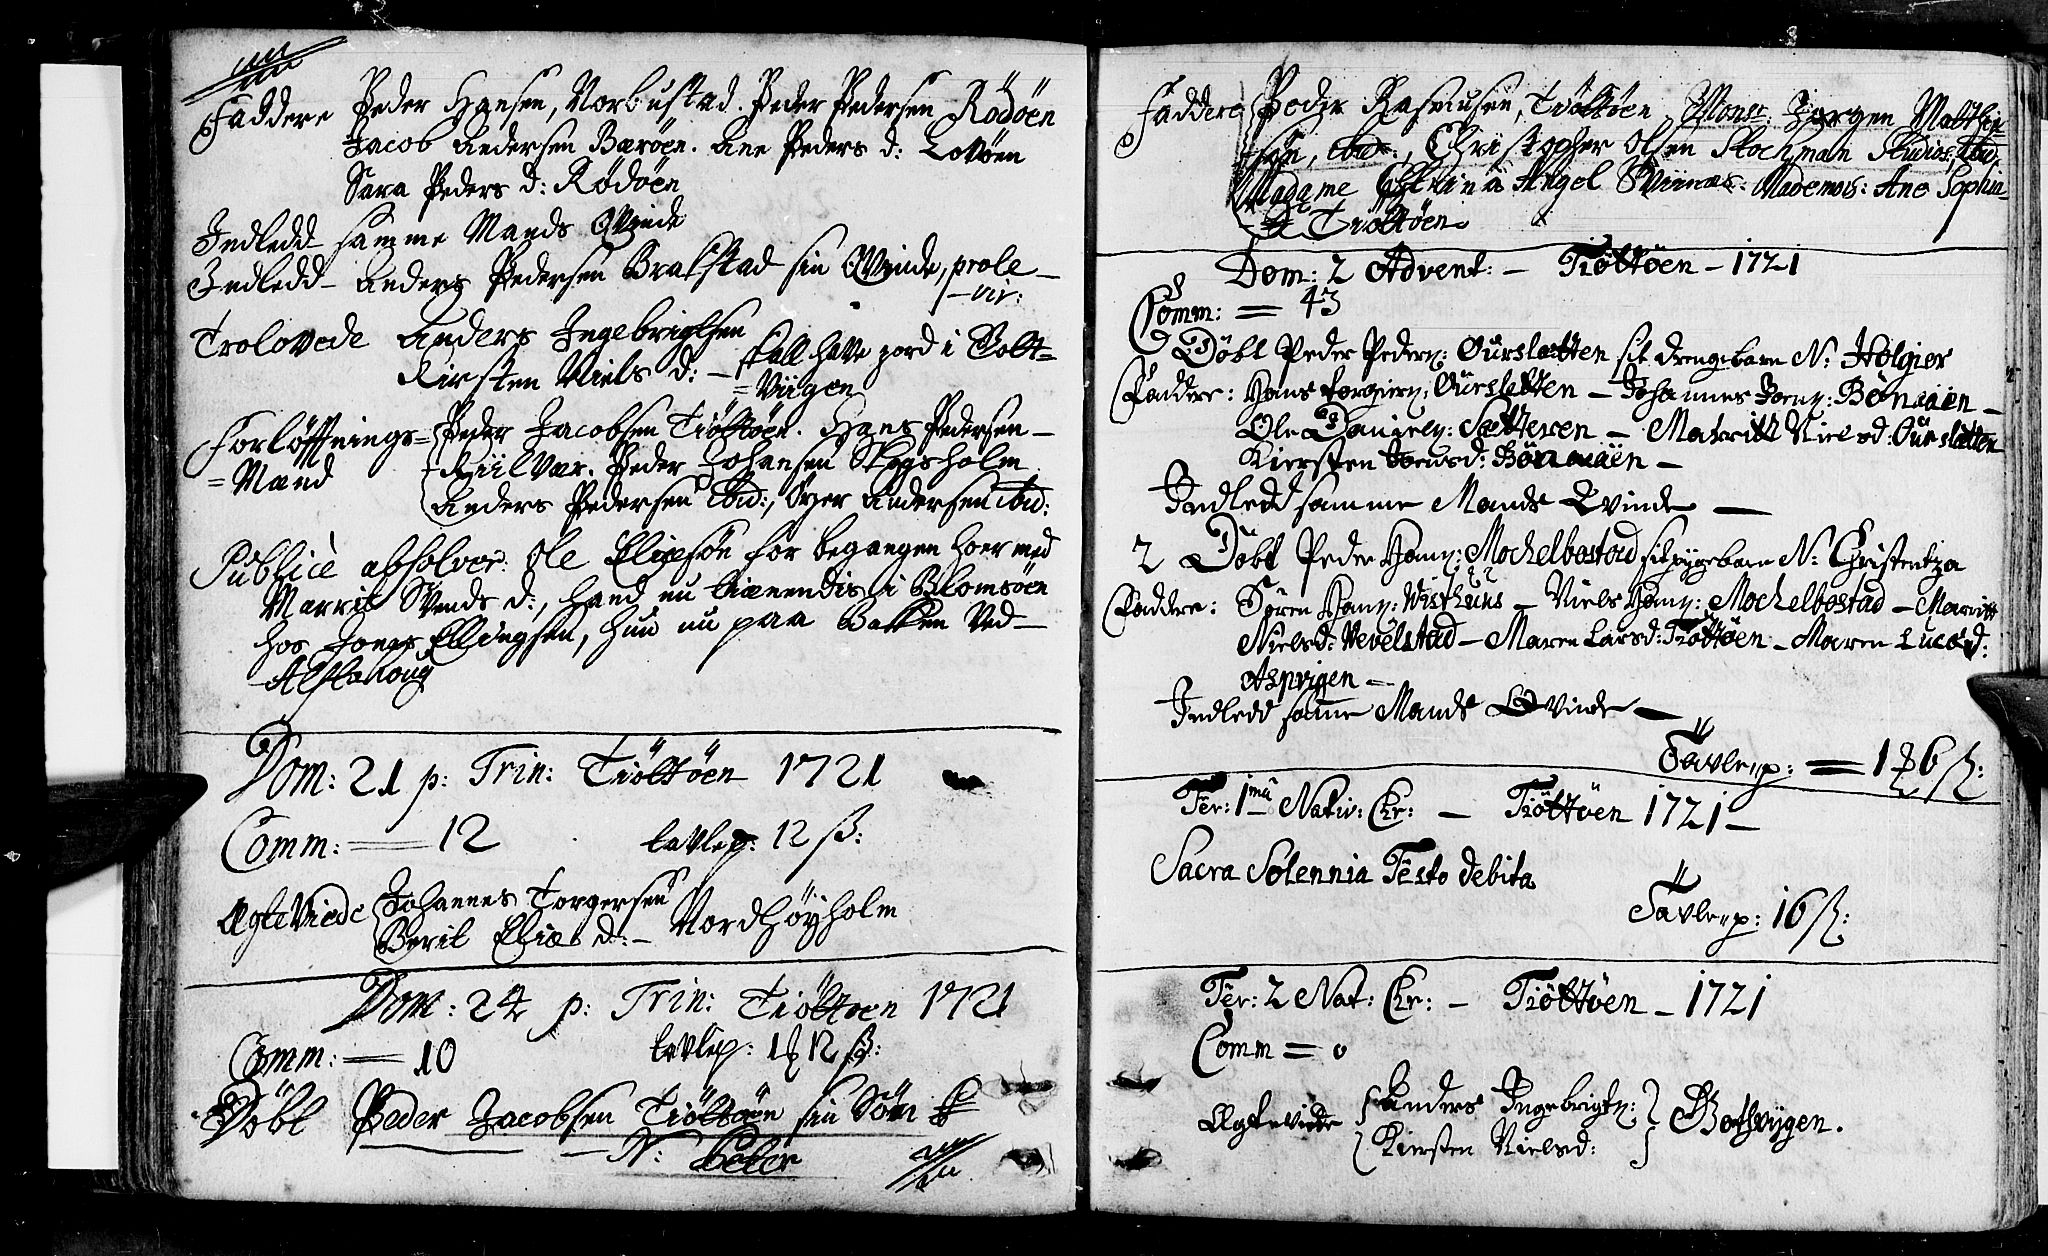 Faddere Peder Hansen, Norbustad. Peder Pedersen Rödöen
Jacob Andersen Bæröen. Ane Peders d: Lovöen
Sara Peders d: Rödöen
Indledd samme Mands Qvinde
Indledd Anders Pedersen Brastad sin Qvinde, prole
vir:
Trolovede Anders Ingebrigtsen
Kirsten Niels d: – skall have jord i Bott=
=Viigen
Forlöffnings= Peder Jacobsen Tiöttöen. Hans Pedersen –
=Mænd Riilvær. Peder Johansen Skogsholm
Anders Pedersen ibid:, Andersen ibid:
Publicè absolver: Ole Eliæsön for begangen hoer med
Marrit Svends d:, hand nu tienendis i Blomsöen
hos Ellingsen, hun nu paa Bakken ved
Alstahoug
Dom: 21 p: Trin: Tiöttöen 1721
Comm: = 12 tavlep: 12 ß:
Ægteviede Johannes Torgersen
Berit Eliæ d: – Nordhöyholm
Dom: 24 p: Trin: Tiöttöen 1721
Comm: = 10 tavlep: 1 12 ß:
Döbt Peder Jacobsen Tiöttöen sin Sön
– N: Peder
Faddere Peder Rasmusen, Tiöttöen Mons: Jørgen Matthi=
=sön, ibid:, Christopher Olsen Stochman Studios: ibid:
Madame Strina Angel Sviinæs: Mademois: Ane Sophia
Tiöttöen
Dom: 2 Advent: – Tiöttöen – 1721
Comm: = 43
Döbt Peder Peders: Oursletten sit drengebarn N: Holgier
Faddere: Hans Torgiers: Oursletten – Johannes Joens: Bönaaen –
Ole Daniels: Sætteren – Marritt Nielsd: Oursletten
Kiersten Joensd: Bönaaen –
Indledd samme Mands Qvinde –
2 Döbt Peder Hans: Mochelbostad sit pygebarn N: Christentza
Faddere: Sören Hans: Wisthuus – Niels Hans: Mochelbostad – Maritt
Nielsd: Vevelstad – Maren Larsd: Tiöttöen – Maren Lucæd:
Aspvigen –
Indledd samme Mands Qvinde –
Tavlep: = 1 6 ß:
Fer: 1ma Nativ: Chr: – Tiöttöen 1721 –
Sacra Solennia Festo debita
Tavlep: 16 ß:
Fer: 2 Nat: Chr: – Tiöttöen – 1721
Comm = 0
Ægtevidde Anders Ingebrigts:
Kiersten Nielsd: Botsvigen.